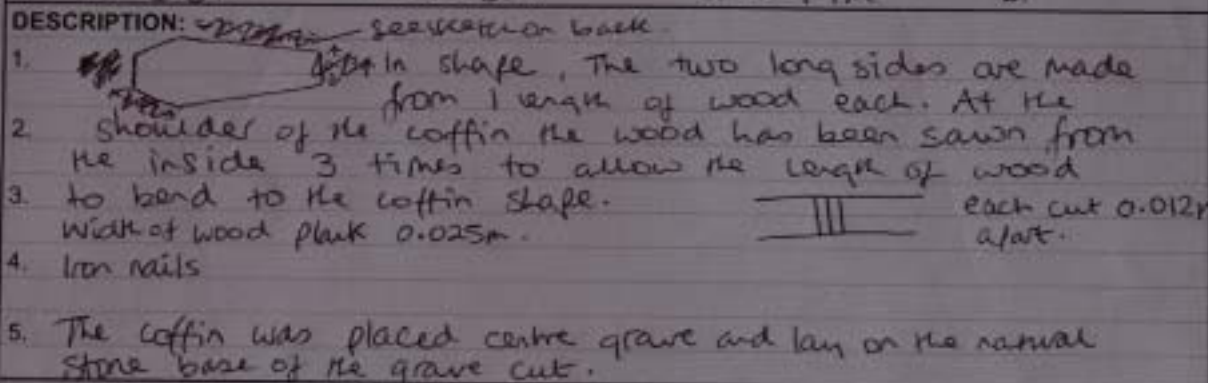 DESCRIPTION: see sketch on back.
1. In shape, The two long sides are made
from 1 length of wood each. At the
2. shoulder of the coffin the wood has been sawn from
the inside 3 times to allow the length of wood
3. to bend to the coffin shape. each cut 0.012m
width of wood plank 0.025m. apart.
4. Iron nails
5. The coffin was placed centre grave and lay on the natural
stone base of the grave cut.